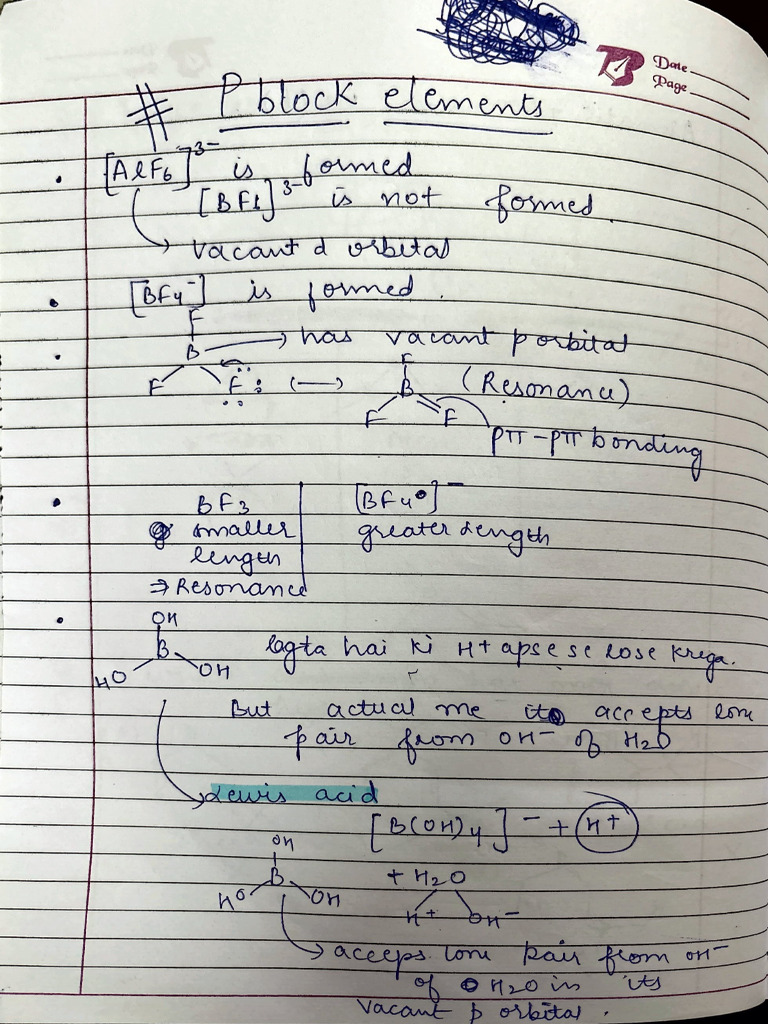 Date
Page
# P block elements
[AlF6]3- is formed
[BF6]3- is not formed
vacant d orbital
[BF4-] is formed.
F
B → has vacant p orbital
F F: ⟷ F B F F (Resonance)
pπ-pπ bonding
BF3 [BF4]-
smaller greater length
length
⇒ Resonance
OH
B
HO OH lagta hai ki H+ apse se lose krega.
But actual me it accepts lone
pair from OH- of H2O
Lewis acid
[B(OH)4]- + H+
OH
B + H2O
HO OH H+ OH-
acceps lone pair from OH-
of H2O in its
vacant p orbital.